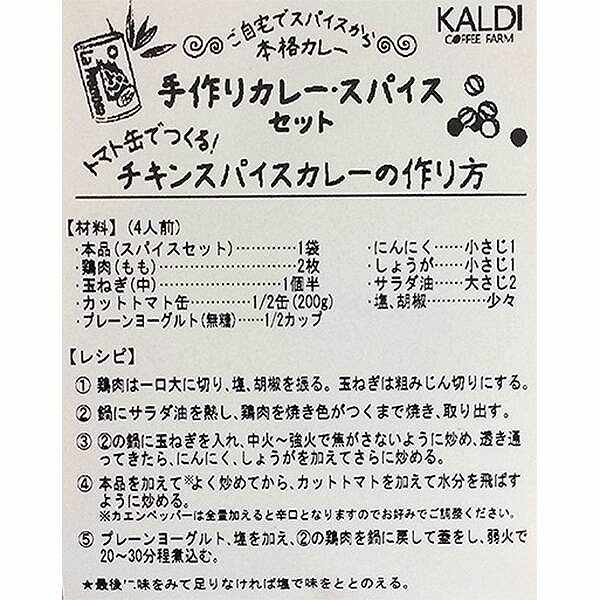 ご自宅でスパイスから
本格カレー
KALDI
COFFEE FARM
手作りカレー・スパイス
セット
トマト缶でつくる!
チキンスパイスカレーの作り方
【材料】(4人前)
・本品(スパイスセット)…………1袋
・鶏肉(もも)……………………2枚
・玉ねぎ(中)…………………1個半
・カットトマト缶…………1/2缶(200g)
・プレーンヨーグルト(無糖)……1/2カップ
・にんにく……小さじ1
・しょうが……小さじ1
・サラダ油……大さじ2
・塩、胡椒………少々
【レシピ】
① 鶏肉は一口大に切り、塩、胡椒を振る。玉ねぎは粗みじん切りにする。
② 鍋にサラダ油を熱し、鶏肉を焼き色がつくまで焼き、取り出す。
③ ②の鍋に玉ねぎを入れ、中火～強火で焦がさないように炒め、透き通
ってきたら、にんにく、しょうがを加えてさらに炒める。
④ 本品を加えて※よく炒めてから、カットトマトを加えて水分を飛ばす
ように炒める。
※カエンペッパーは全量加えると辛口となりますのでお好みでご調整ください。
⑤ プレーンヨーグルト、塩を加え、②の鶏肉を鍋に戻して蓋をし、弱火で
20～30分程煮込む。
★最後に味をみて足りなければ塩で味をととのえる。